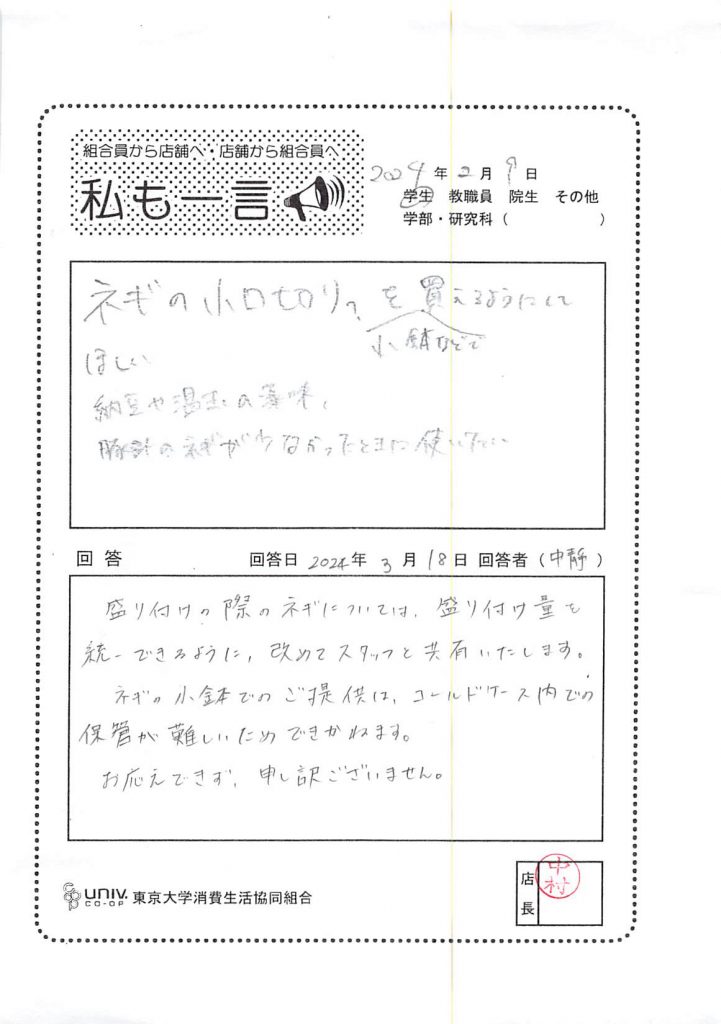 組合員から店舗へ・店舗から組合員へ
私も一言
2024年2月9日
学生 教職員 院生 その他
学部・研究科( )
ネギの小口切り、を買えるようにして
小鉢などで
ほしい
納豆や温玉の薬味、
豚汁のネギが少なかったときに使いたい
回答 回答日 2024年3月18日 回答者(中静)
盛り付けの際のネギについては、盛り付け量を
統一できるように、改めてスタッフと共有いたします。
ネギの小鉢でのご提供は、コールドケース内での
保管が難しいためできかねます。
お応えできず、申し訳ございません。
店長
中村
UNIV.
CO-OP
東京大学消費生活協同組合